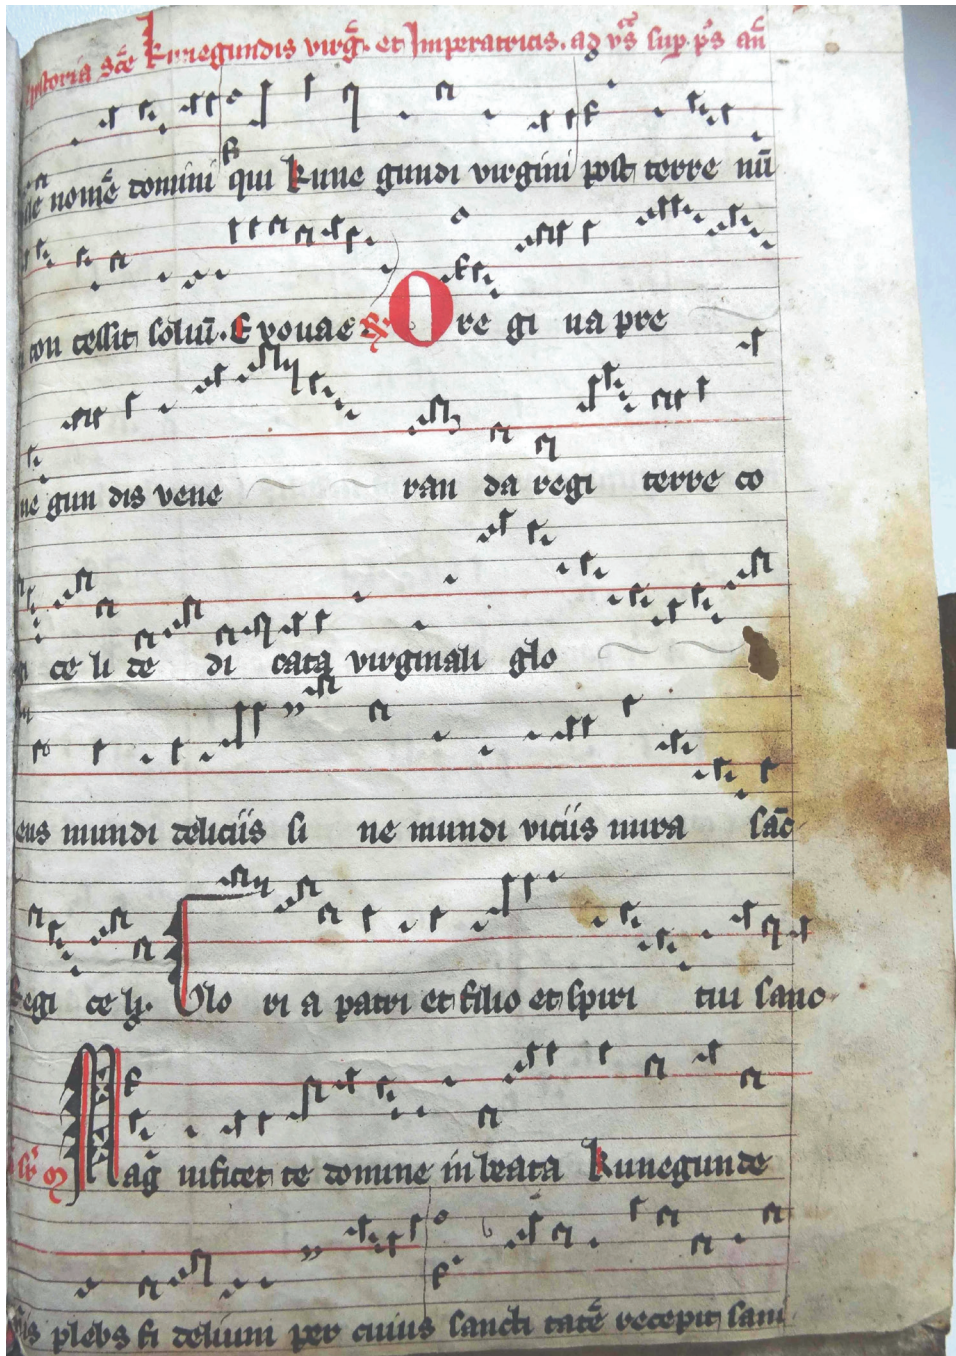 hystoria scē Kunegundis virḡ. et Imperatricis. ad vs̄ sup. ps̄ an̄
nomē domini qui kune gundi virgini post terre nū
con cessit soliū. E vouae. O re gi na pre
ne gun dis vene ran da regi terre co
ce li te di cata virginali glo
eus mundi deliciis si ne mundi viciis mira sāc
Regi ce li. Glo ri a patri et filio et spiri tui sanc
Mag̅ nificet te domine in beata kunegunde
plebs fi delium per cuius sancti tatē recepit sani